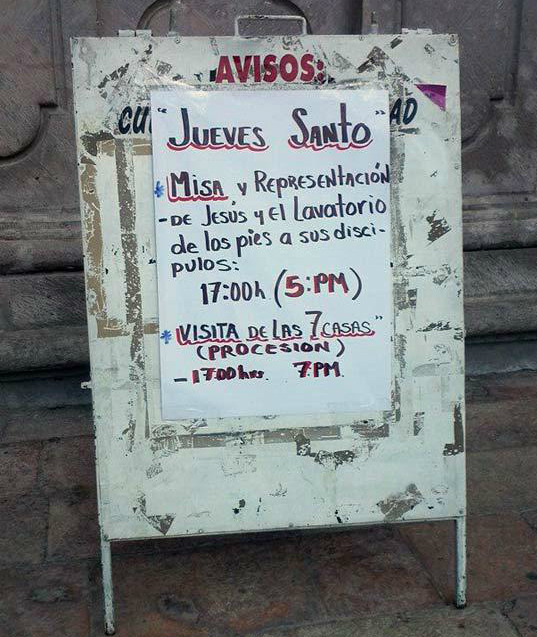 AVISOS:
"JUEVES SANTO"
* MISA y REPRESENTACIÓN
- DE JESUS y el Lavatorio
de los pies a sus disci-
pulos:
17:00h (5:PM)
* "VISITA DE LAS 7 CASAS."
(PROCESION)
- 1700 hrs. 7PM.